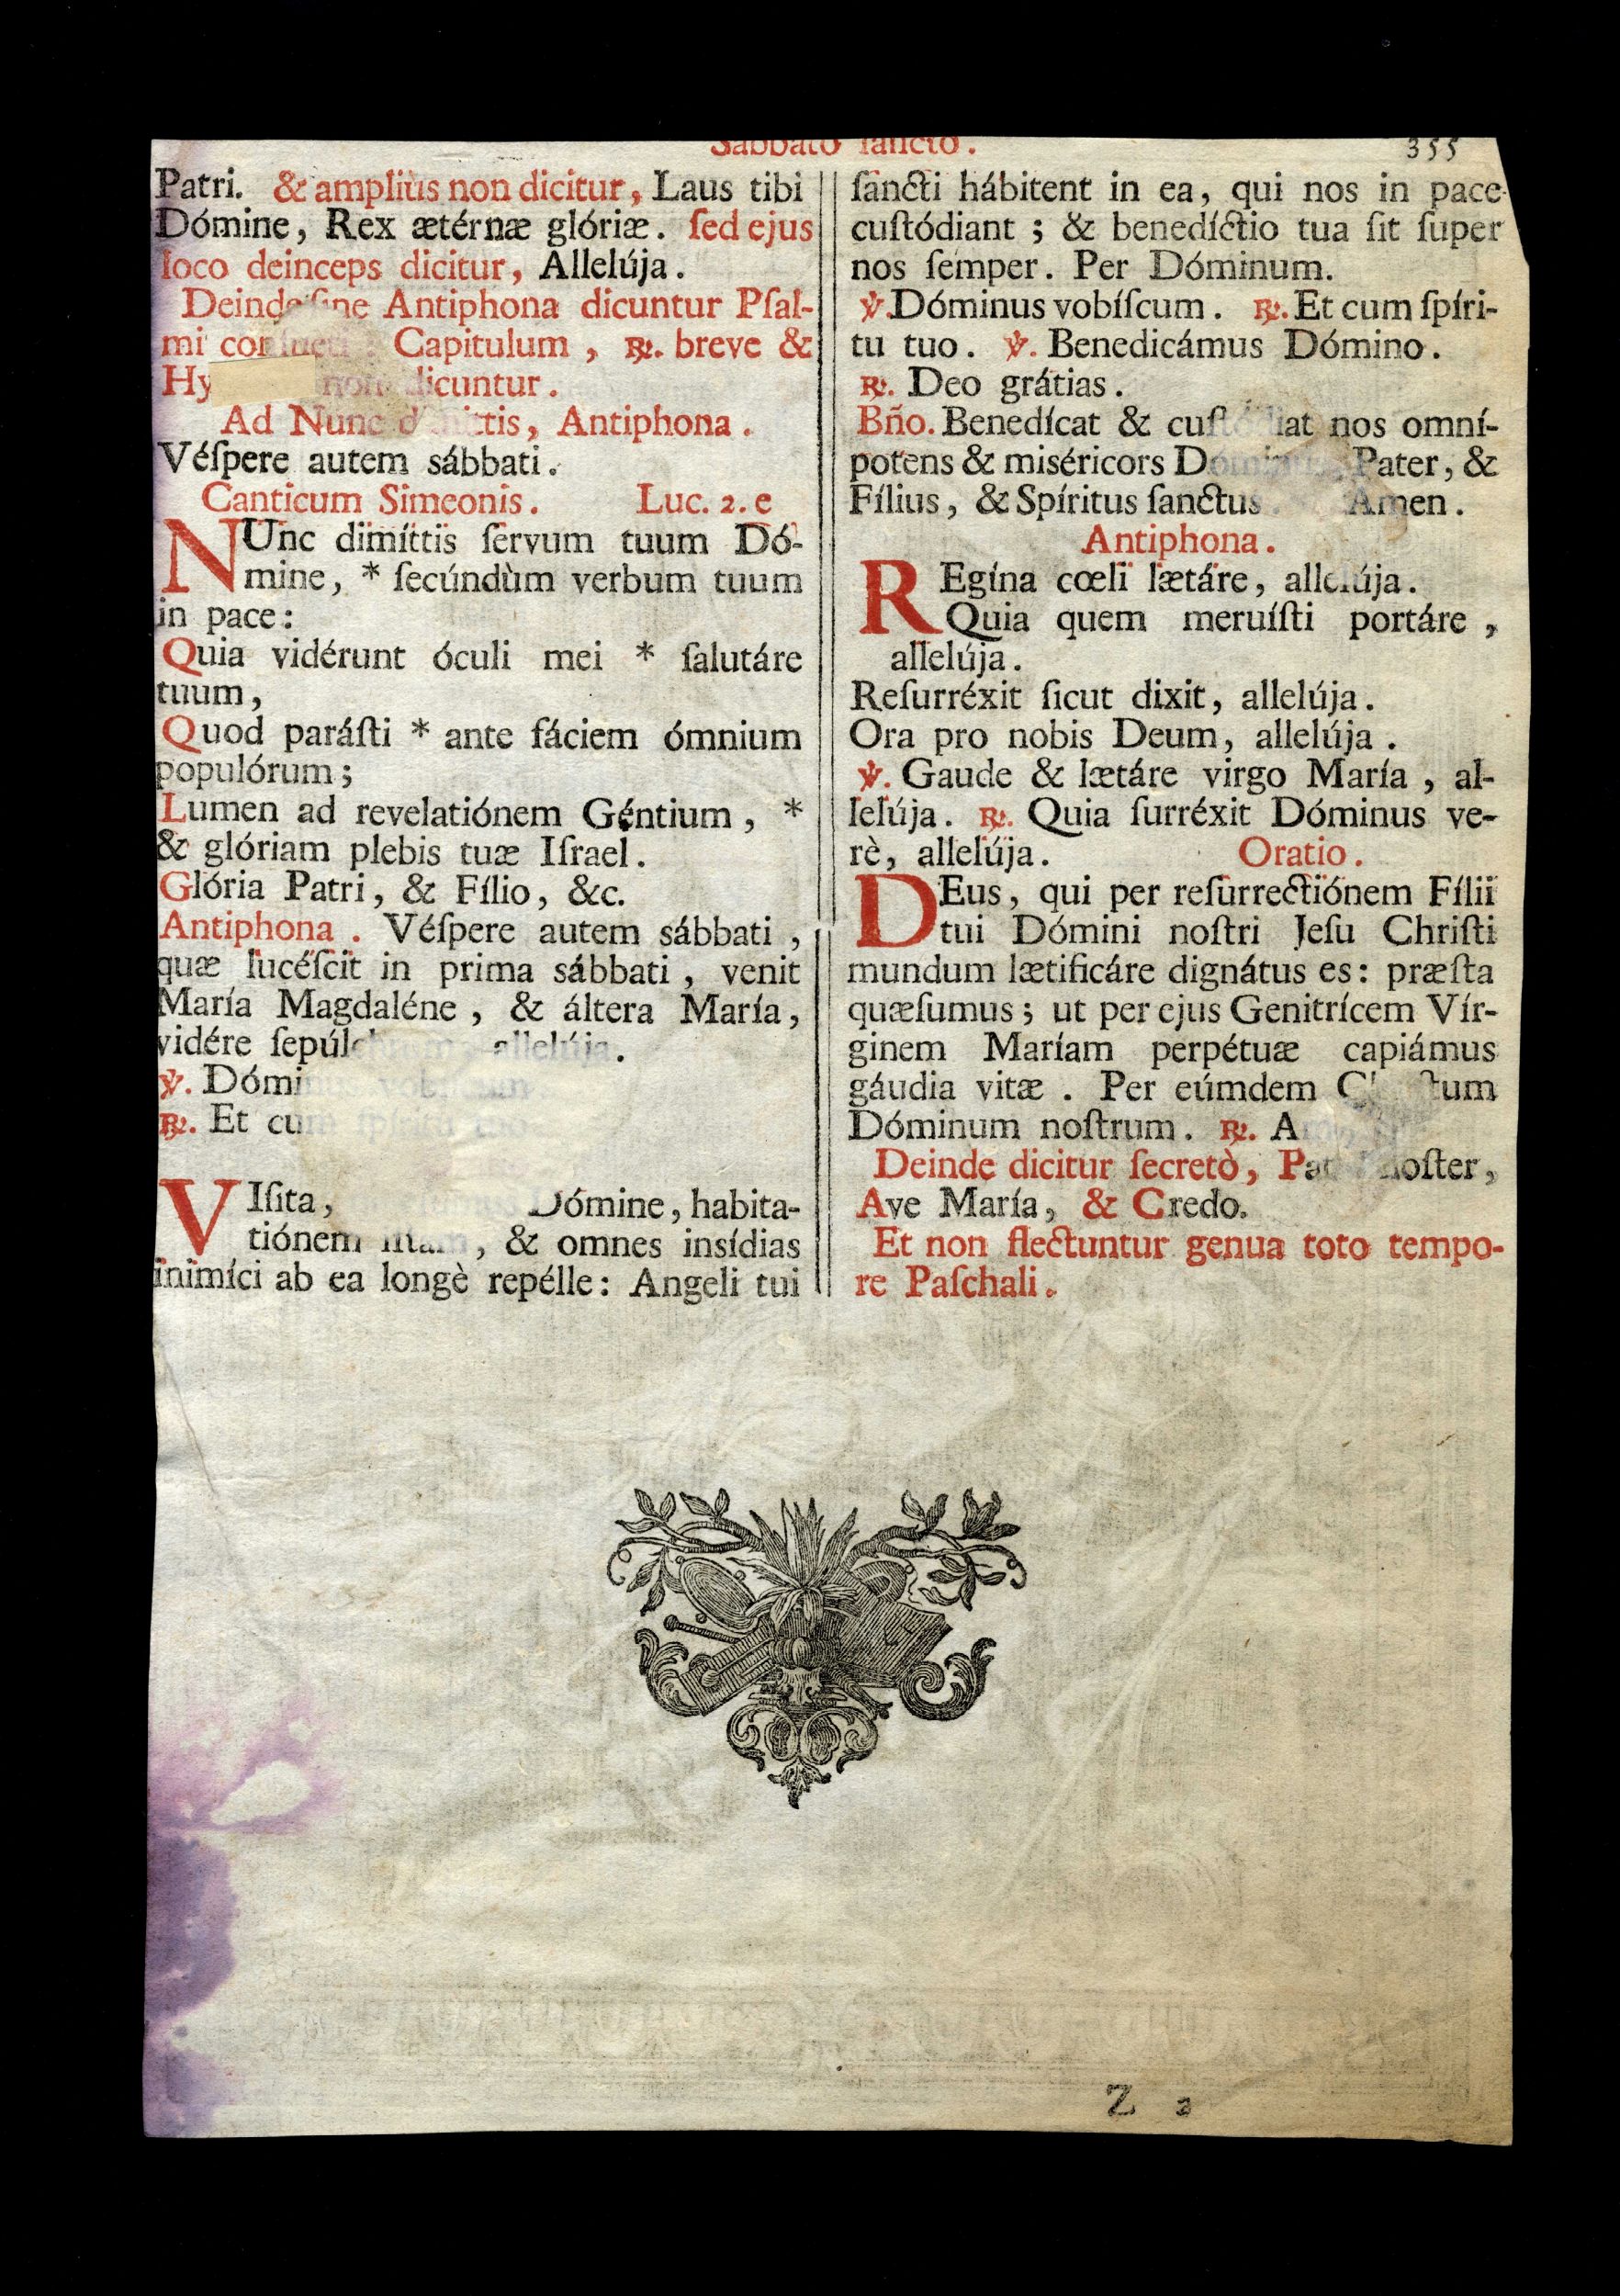 Sabbato ſancto.
355
Patri. & ampliùs non dicitur, Laus tibi
Dómine, Rex ætérnæ glóriæ. ſed ejus
loco deinceps dicitur, Allelúja.
Deinde ſine Antiphona dicuntur Pſal-
mi Capitulum, ℟. breve &
non dicuntur.
Ad Nunc dimittis, Antiphona.
Véſpere autem sábbati.
Canticum Simeonis. Luc. 2. e
NUnc dimíttis ſervum tuum Dó-
mine, * ſecúndùm verbum tuum
in pace:
Quia vidérunt óculi mei * ſalutáre
tuum,
Quod paráſti * ante fáciem ómnium
populórum;
Lumen ad revelatiónem Géntium, *
& glóriam plebis tuæ Iſrael.
Glória Patri, & Fílio, &c.
Antiphona. Véſpere autem sábbati,
quæ lucéſcit in prima sábbati, venit
María Magdaléne, & áltera María,
vidére ſepúlchrum, allelúja.
℣. Dóminus vobíſcum.
℟. Et cum ſpíritu tuo.
VIſita, Dómine, habita-
tiónem iſtam, & omnes insídias
inimíci ab ea longè repélle: Angeli tui
ſancti hábitent in ea, qui nos in pace
cuſtódiant; & benedíctio tua ſit ſuper
nos ſemper. Per Dóminum.
℣. Dóminus vobíſcum. ℟. Et cum ſpíri-
tu tuo. ℣. Benedicámus Dómino.
℟. Deo grátias.
Bño. Benedícat & cuſtódiat nos omní-
potens & miséricors Dóminus, Pater, &
Fílius, & Spíritus ſanctus. Amen.
Antiphona.
REgína cœli lætáre, allelúja.
Quia quem meruíſti portáre,
allelúja.
Reſurréxit ſicut dixit, allelúja.
Ora pro nobis Deum, allelúja.
℣. Gaude & lætáre virgo María, al-
lelúja. ℟. Quia ſurréxit Dóminus ve-
rè, allelúja. Oratio.
DEus, qui per reſurrectiónem Fílii
tui Dómini noſtri Jeſu Chriſti
mundum lætificáre dignátus es: præſta
quæſumus; ut per ejus Genitrícem Vír-
ginem Maríam perpétuæ capiámus
gáudia vitæ. Per eúmdem Chriſtum
Dóminum noſtrum. ℟. Amen.
Deinde dicitur ſecretò, Pater noſter,
Ave María, & Credo.
Et non flectuntur genua toto tempo-
re Paſchali.
Z 2